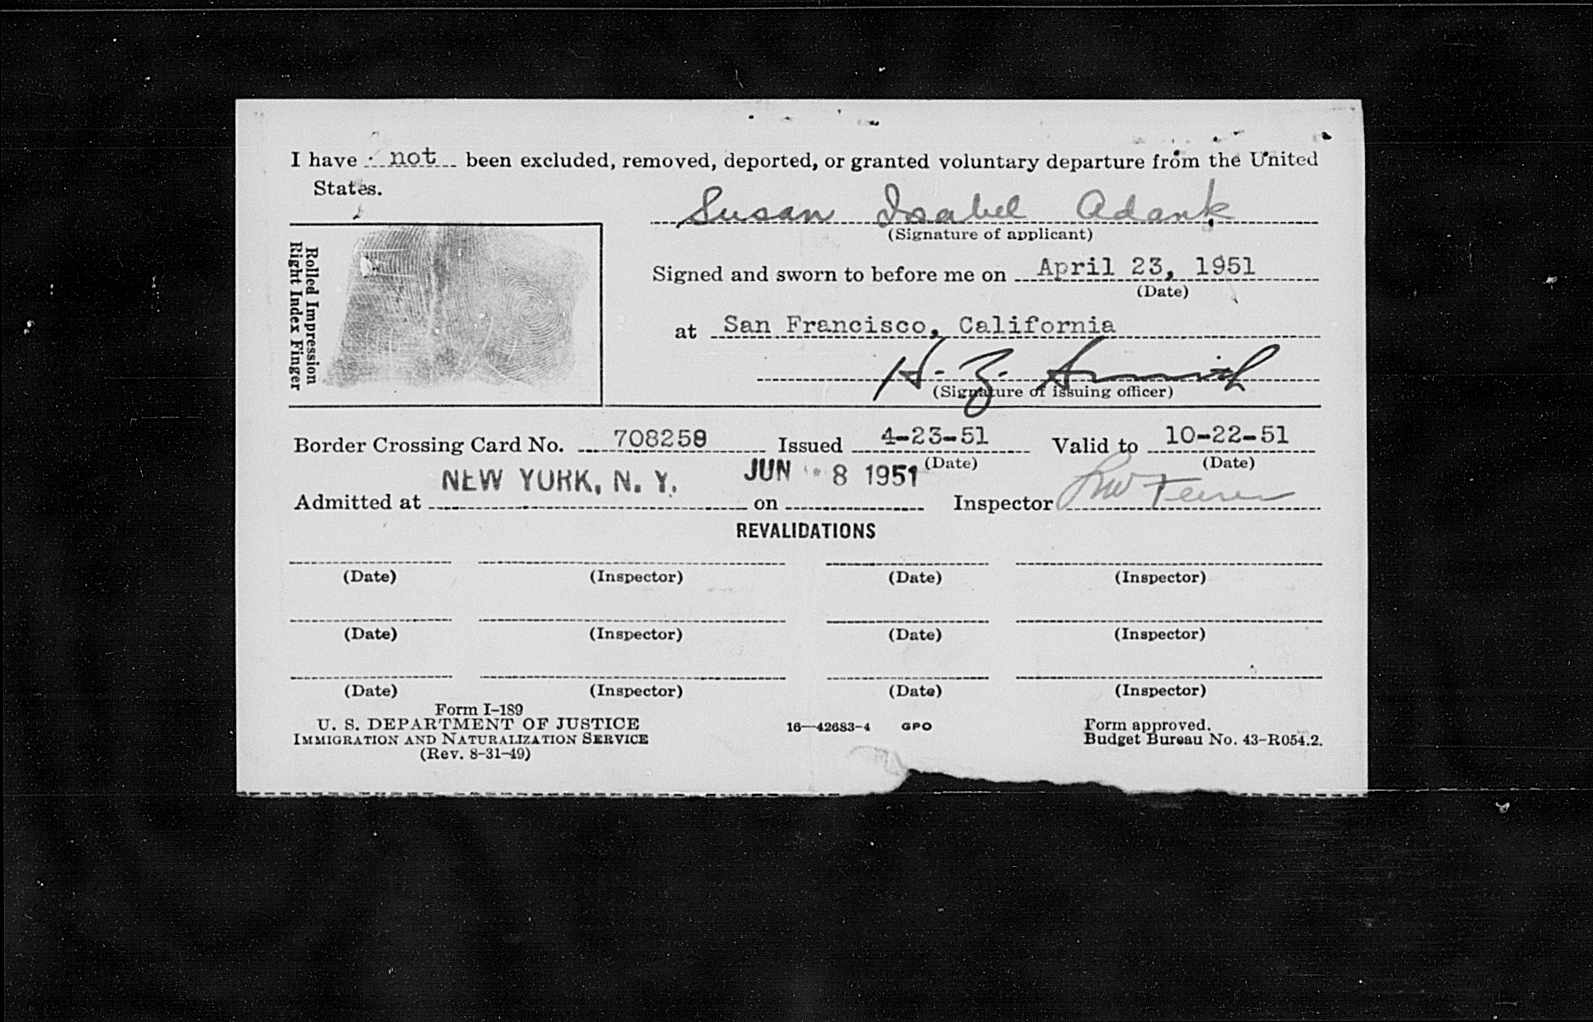 I have not been excluded, removed, deported, or granted voluntary departure from the United
States.
Susan Isabel Adank
(Signature of applicant)
Rolled Impression
Right Index Finger
Signed and sworn to before me on April 23, 1951
(Date)
at San Francisco, California
H. Z. Smith
(Signature of issuing officer)
Border Crossing Card No. 708258 Issued 4-23-51 Valid to 10-22-51
(Date) (Date)
NEW YORK, N. Y. JUN 8 1951
Admitted at on Inspector
REVALIDATIONS
(Date) (Inspector) (Date) (Inspector)
(Date) (Inspector) (Date) (Inspector)
(Date) (Inspector) (Date) (Inspector)
Form I-189
U. S. DEPARTMENT OF JUSTICE
IMMIGRATION AND NATURALIZATION SERVICE
(Rev. 8-31-49)
16—42683-4 GPO
Form approved.
Budget Bureau No. 43-R054.2.